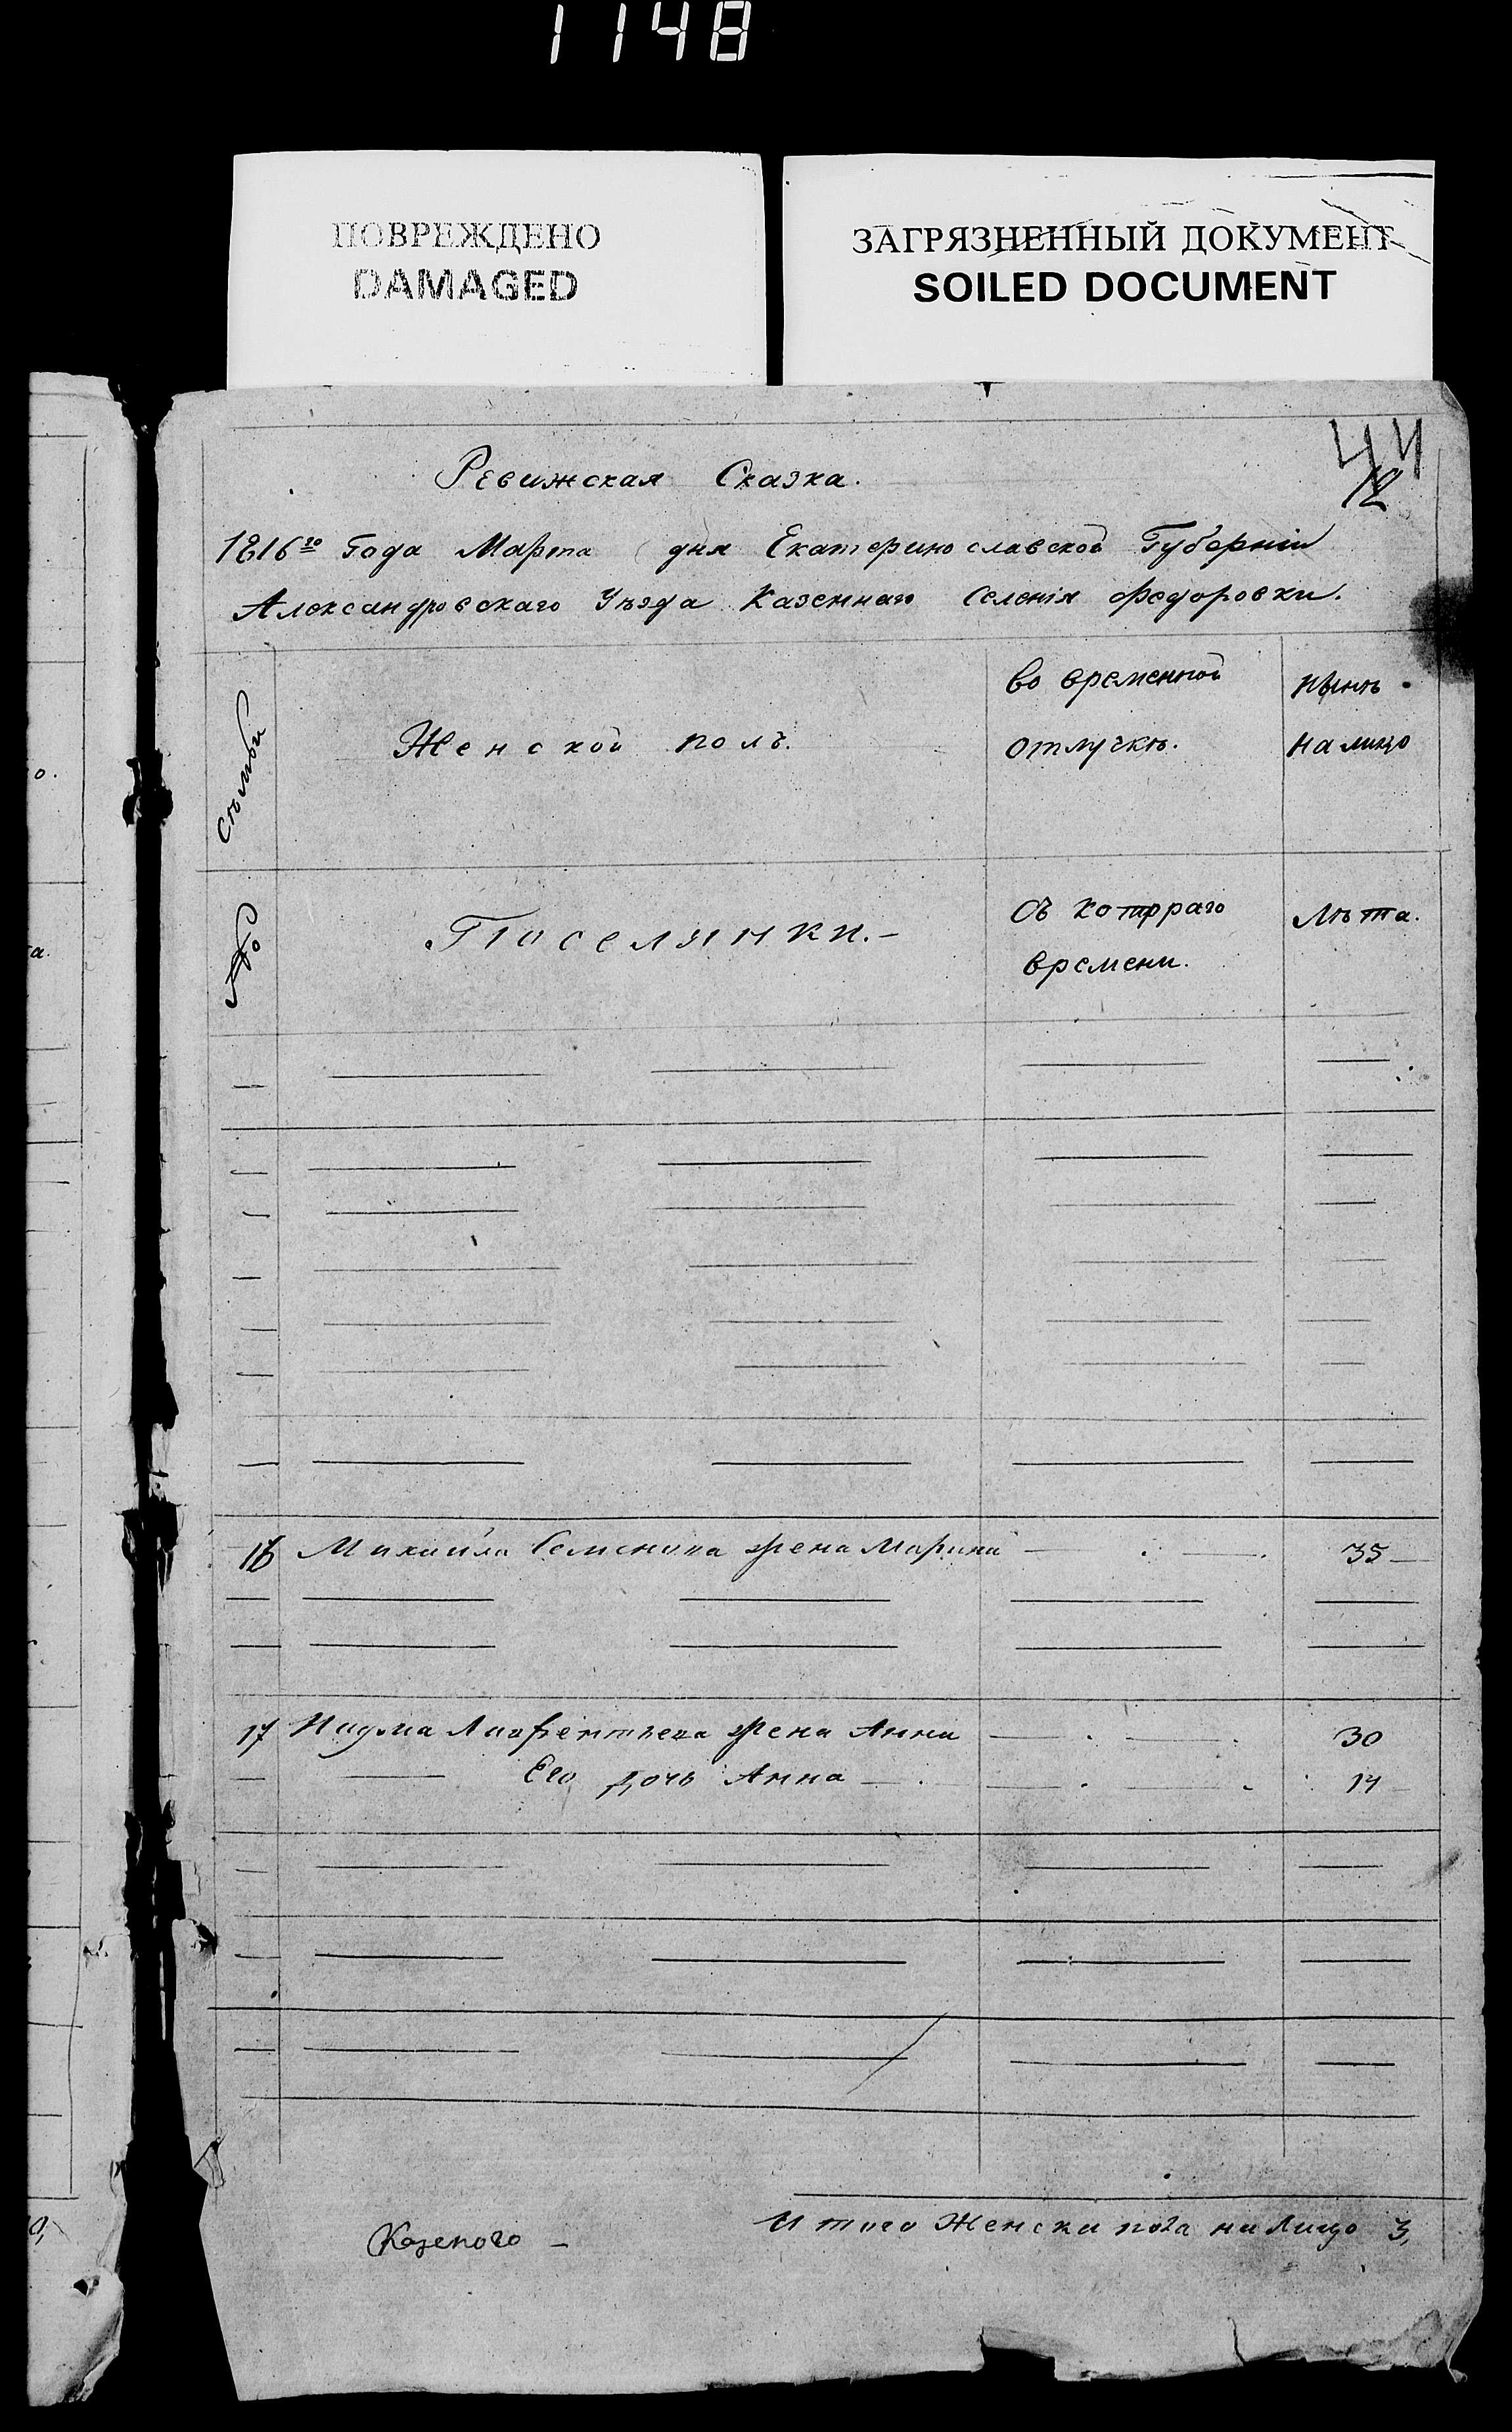 1148
ПОВРЕЖДЕНО
DAMAGED
ЗАГРЯЗНЕННЫЙ ДОКУМЕНТ
SOILED DOCUMENT
44
12
Ревижская Сказка.
1816го Года Марта дня Екатеринославской Губерніи
Александровскаго Уѣзда Казеннаго Селенія Федоровки.
Женской полъ.
во временной
отлучкѣ.
нынѣ
на лицо
Поселянки.
съ котораго
времени.
Лѣта.
16 Михайла Семенова жена Марина 35
17 Наума Лаврентьева жена Анна 30
Его дочь Анна 14
Итого Женска пола на лицо 3,
Казеного